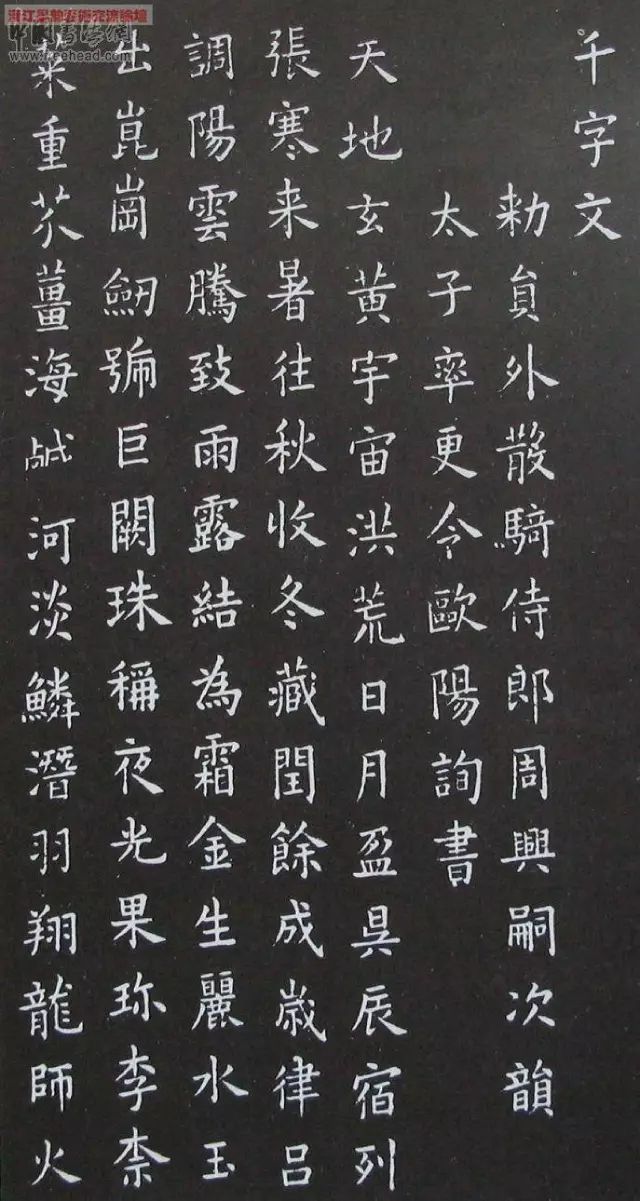 千字文
勅貟外散騎侍郎周興嗣次韻
太子率更令歐陽詢書
天地玄黄宇宙洪荒日月盈昃辰宿列
張寒来暑往秋收冬藏閏餘成歲律吕
調陽雲騰致雨露結為霜金生麗水玉
出崑崗劒號巨闕珠稱夜光果珎李柰
菜重芥薑海鹹河淡鱗潛羽翔龍師火
www.freehead.com